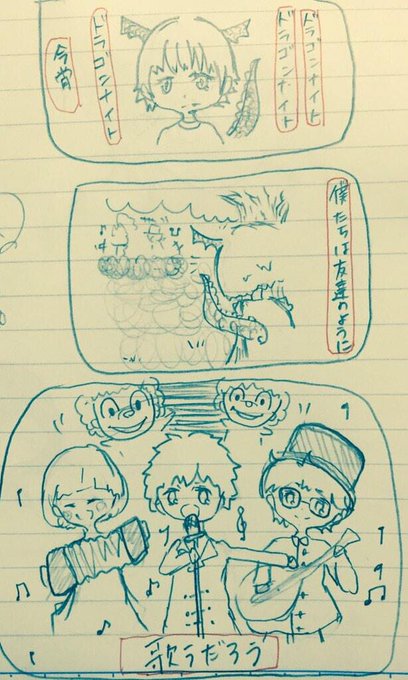 ドラゴンナイト
ドラゴンナイト
ドラゴンナイト
今宵
僕たちは友達のように
歌うだろう